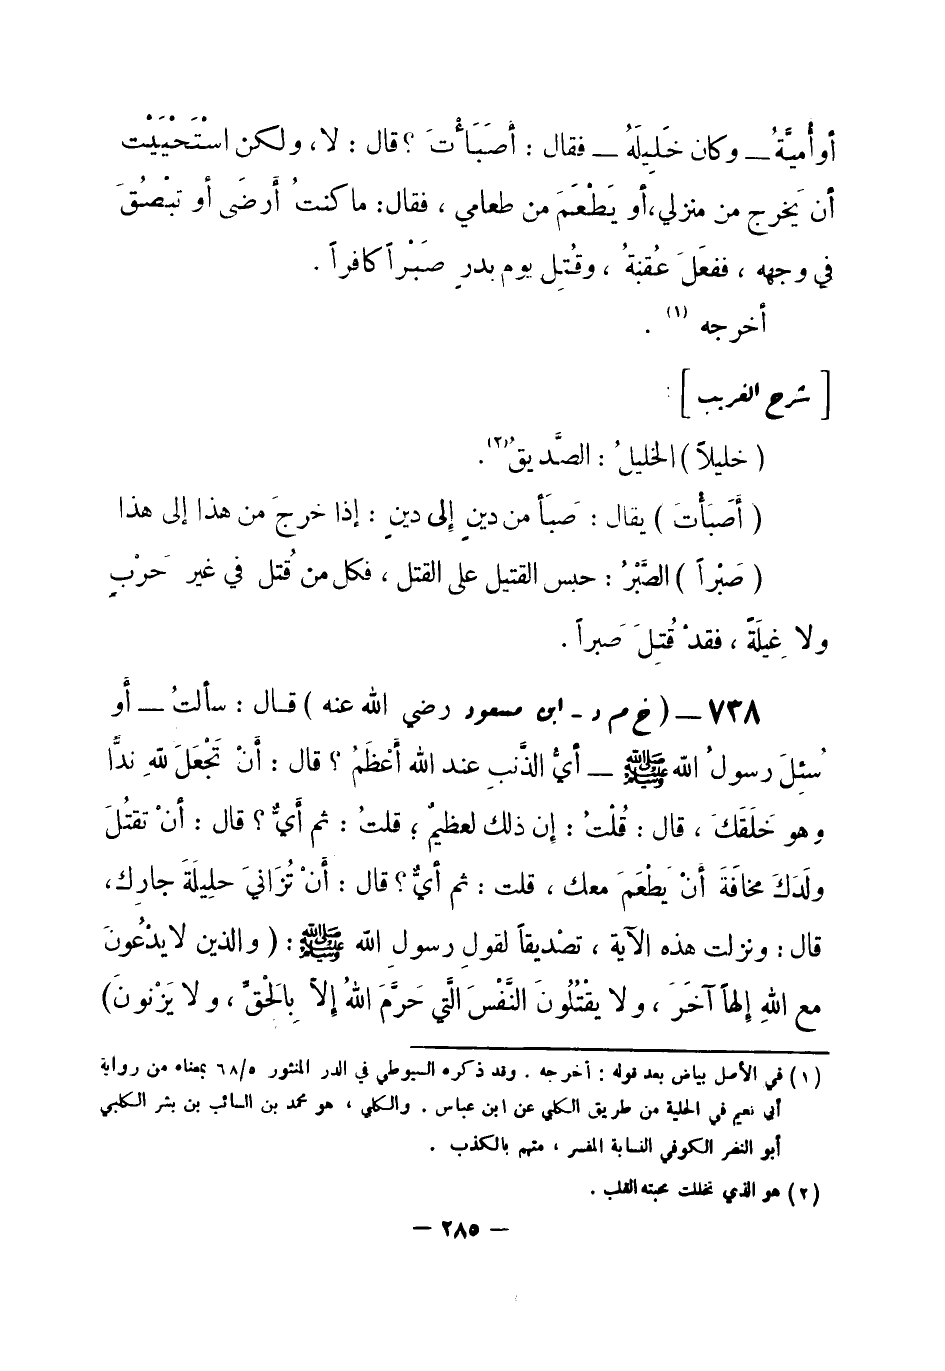 أو أُميَّةُ ــ وكان خَلِيلَهُ ــ فقال : أَصَبَأْتَ ؟ قال : لا ، ولكن استَحْيَيْت
أن يَخرج من منزلي ، أو يَطْعَمَ من طعامي ، فقال : ما كنتُ أَرضَى أو تبْصُقَ
في وجهه ، ففعَلَ عُقبَةُ ، وقُتِل يوم بدرٍ صَبْراً كافراً .
أخرجه (١) .
[ شرح الغريب ] :
( خليلاً ) الخليلُ : الصَّديقُ(٢) .
( أَصَبَأْتَ ) يقال : صَبَأَ من دينٍ إلى دينٍ : إذا خرجَ من هذا إلى هذا
( صَبْراً ) الصَّبْرُ : حبس القتيل على القتل ، فكل من قُتل في غير حَرْبٍ
ولا غِيلَةً ، فقدْ قُتِلَ صَبراً .
٧٣٨ ــ ( خ م د ـ ابن مسعود رضي الله عنه ) قال : سألتُ ــ أو
سُئِلَ رسولُ الله ﷺ ــ أيُّ الذَّنبِ عند الله أَعْظَمُ ؟ قال : أَنْ تَجْعَلَ للهِ نِدًّا
وهو خَلَقَكَ ، قال : قُلْتُ : إن ذلك لعظيمٌ ؛ قلتُ : ثم أَيٌّ ؟ قال : أنْ تقتُلَ
ولَدَكَ مخافَةَ أَنْ يَطْعَمَ معك ، قلت : ثم أيٌّ ؟ قال : أَنْ تُزَانيَ حلِيلَةَ جارِك ،
قال : ونزلت هذه الآية ، تصْديقاً لقولِ رسولِ الله ﷺ : ( والذين لا يدْعُونَ
مع اللهِ إلهاً آخَرَ ، ولا يقْتُلُونَ النَّفْسَ الَّتي حَرَّمَ اللهُ إلاَّ بِالَحْقِّ ، ولا يَزْنونَ )
(١) في الأصل بياض بعد قوله : أخرجه . وقد ذكره السيوطي في الدر المنثور ٦٨/٥ بمعناه من رواية
أبي نعيم في الحلية من طريق الكلبي عن ابن عباس . والكلبي ، هو محمد بن السائب بن بشر الكلبي
أبو النضر الكوفي النسابة المفسر ، متهم بالكذب .
(٢) هو الذي تخللت محبته القلب .
— ٢٨٥ —